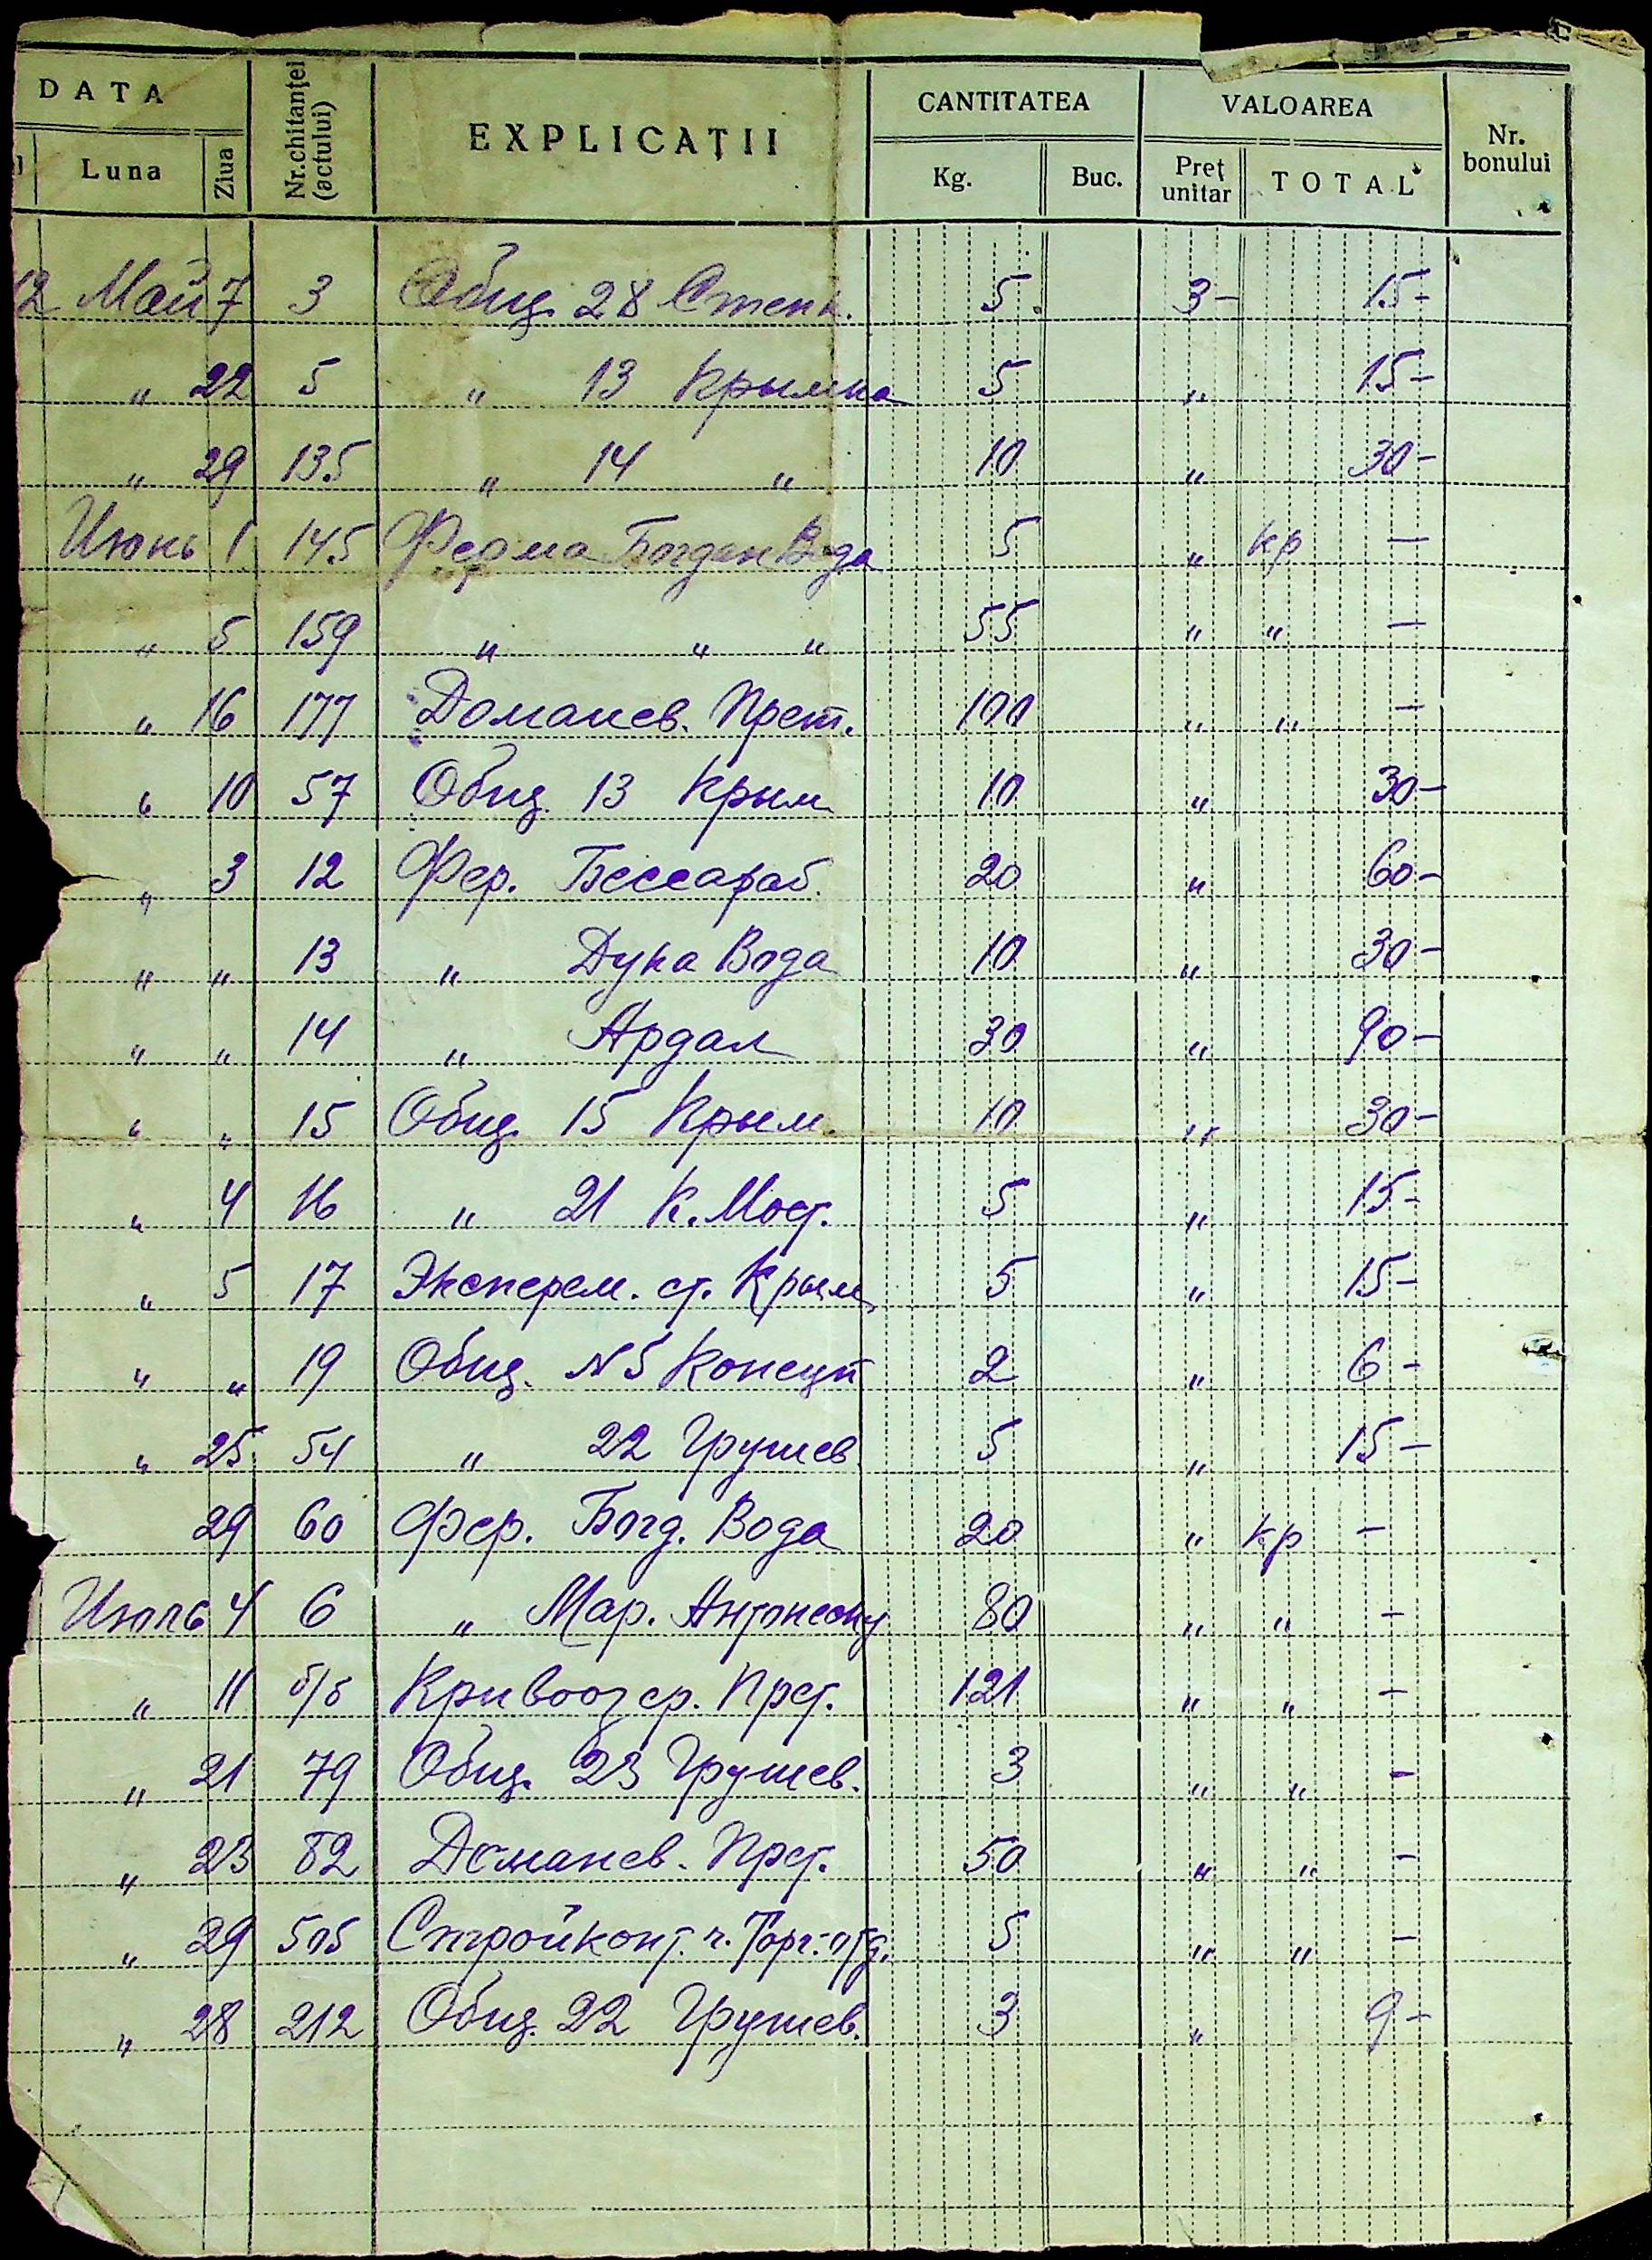 DATA Nr. chitanței (actului) EXPLICAȚII CANTITATEA VALOAREA Nr. bonului
l Luna Ziua Kg. Buc. Preț unitar TOTAL
12 Май 7 3 Общ. 28 Степк. 5 3- 15-
„ 22 5 „ 13 Крымка 5 „ 15-
„ 29 135 „ 14 „ 10 „ 30-
Июнь 1 145 Ферма Богдан Вода 5 „ кр —
„ 5 159 „ „ „ 55 „ „ —
„ 16 177 Доманев. Прет. 100 „ „ —
„ 10 57 Общ. 13 Крым 10 „ 30-
„ 3 12 Фер. Бессараб. 20 „ 60-
„ „ 13 „ Дука Вода 10 „ 30-
„ „ 14 „ Ардал 30 „ 90-
„ „ 15 Общ. 15 Крым. 10 „ 30-
„ 4 16 „ 21 К. Мост. 5 „ 15-
„ 5 17 Эксперем. ст. Крым 5 „ 15-
„ „ 19 Общ. N 5 Конецп 2 „ 6-
„ 25 54 „ 22 Грушев 5 „ 15-
29 60 Фер. Богд. Вода 20 „ кр -
Июль 4 6 „ Мар. Антонеску 80 „ „ -
„ 11 б/б Кривоозер. Прет. 121 „ „ -
„ 21 79 Общ. 23 Грушев. 3 „ „ -
„ 23 82 Доманев. Прет. 50 „ „ -
„ 29 505 Стройконт. ч. Торг. отд. 5 „ „ -
„ 28 212 Общ. 22 Грушев. 3 „ 9-